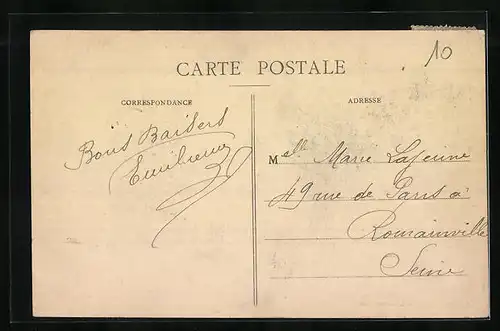 10
CARTE POSTALE
CORRESPONDANCE
ADRESSE
Bons Baisers
Emilienne
Melle Marie Lajeune
49 rue de Paris à
Romainville
Seine